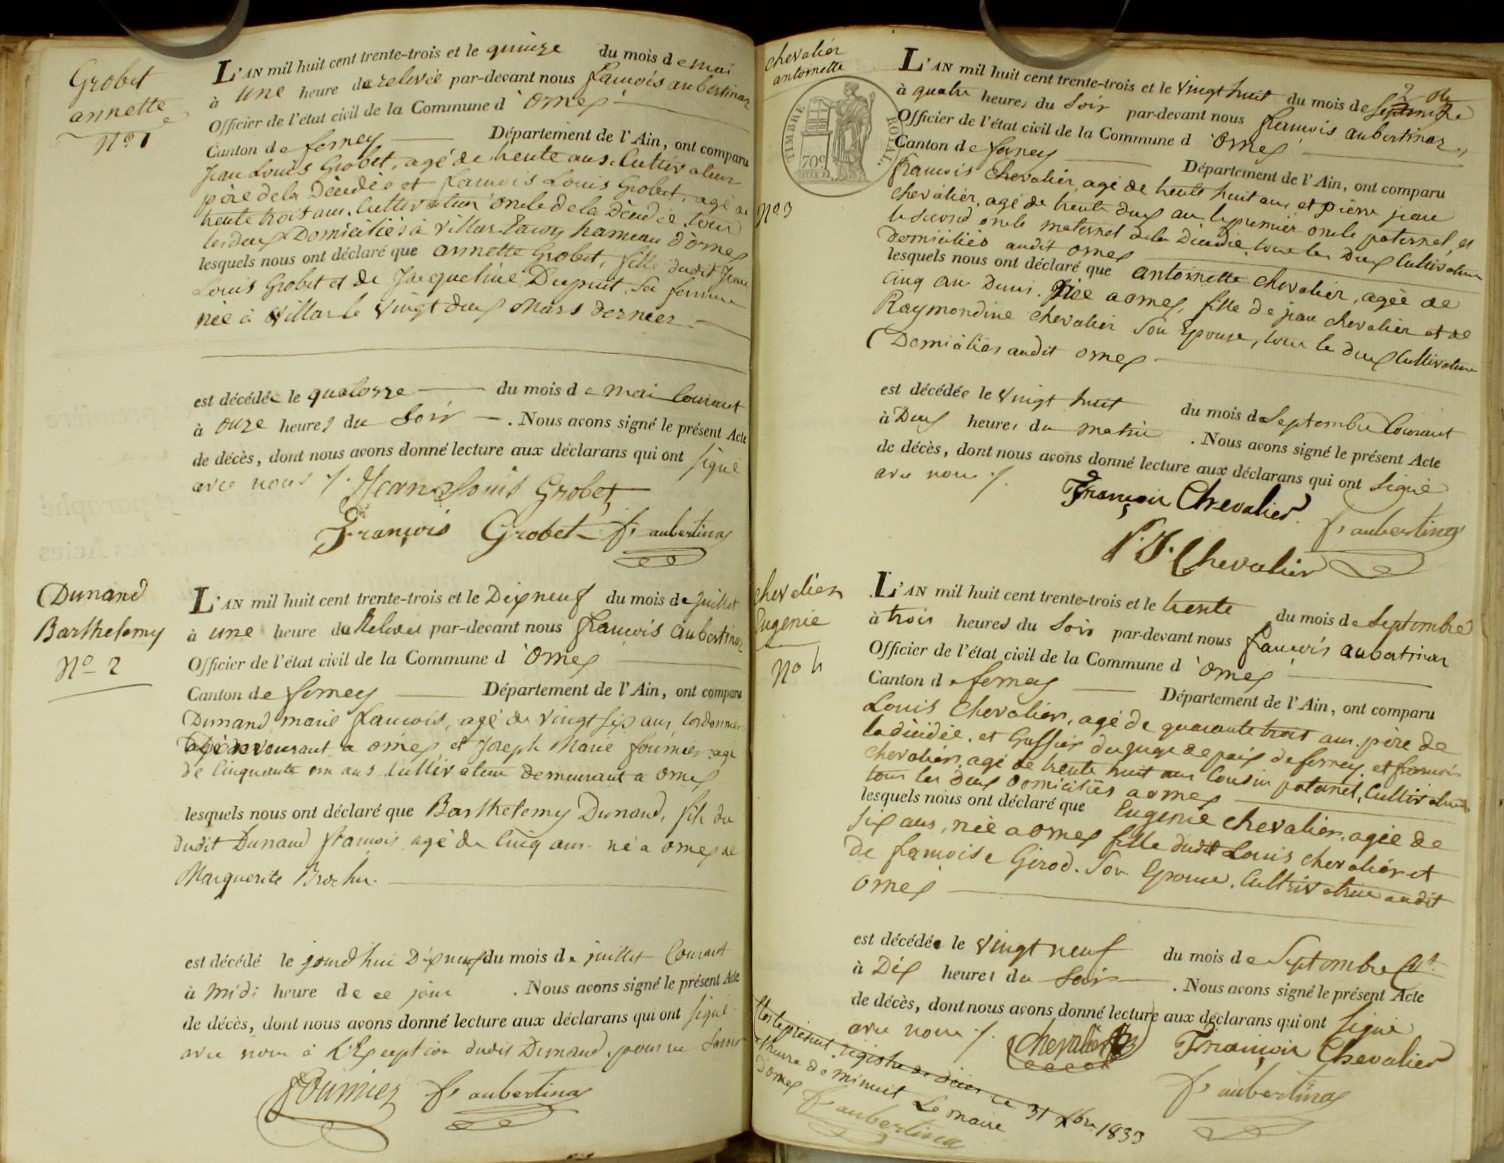 Grobet
annette
N° 1
L'AN mil huit cent trente-trois et le quinze du mois de mai
à une heure de relevée par-devant nous françois aubertinaz
Officier de l'état civil de la Commune d'ornex
Canton de ferney Département de l'Ain, ont comparu
Jean Louis Grobet, agé de trente ans Cultivateur
père de la Décédée et françois Louis Grobet, agé de
trente trois ans, Cultivateur oncle de la Décédée, tous
les deux Domiciliés à Villar Tacon hameau d'ornex
lesquels nous ont déclaré que annette Grobet, fille dudit Jean
Louis Grobet et de Jacqueline Dupuit Sa femme
née à Villar le Vingt deux Mars dernier
est décédée le quatorze du mois de mai Courant
à onze heures du Soir . Nous avons signé le présent Acte
de décès, dont nous avons donné lecture aux déclarans qui ont signé
avec nous /.
Jean Louis Grobet
François Grobet fs aubertinaz
Dunand
Barthelemy
N° 2
L'AN mil huit cent trente-trois et le Dix neuf du mois de juillet
à une heure de Relevée par-devant nous françois aubertinaz
Officier de l'état civil de la Commune d'ornex
Canton de ferney Département de l'Ain, ont comparu
Dunand marie françois, agé de vingt six ans, Cordonnier
demeurant a ornex, et Joseph Marie fournier agé
de Cinquante un ans Cultivateur demeurant a ornex
lesquels nous ont déclaré que Barthelemy Dunand, fils du
dudit Dunand françois agé de Cinq ans né a ornex de
Marguerite
est décédé le jourd'hui Dix neuf du mois de juillet Courant
à midi heure de ce jour . Nous avons signé le présent Acte
de décès, dont nous avons donné lecture aux déclarans qui ont signé
avec nous à l'Exception dudit Dunand, pour ne
Fournier fs aubertinaz
Chevalier
antoinette
TIMBRE ROYAL
70c
N° 3
L'AN mil huit cent trente-trois et le Vingt huit du mois de Septembre
à quatre heures du Soir par-devant nous françois aubertinaz
Officier de l'état civil de la Commune d'ornex
Canton de ferney Département de l'Ain, ont comparu
françois Chevalier, agé de trente huit ans, et pierre jean
Chevalier, agé de trente deux ans le premier oncle paternel, et
le Second oncle maternel de la Décédée, tous les Deux Cultivateurs
Domiciliés audit ornex
lesquels nous ont déclaré que antoinette Chevalier, agée de
Cinq ans Demi. Née a ornex, fille de jean Chevalier et de
Raymondine Chevalier Son Epouse, tous les deux Cultivateurs
Domiciliés audit ornex
est décédée le Vingt huit du mois de Septembre Courant
à Deux heures du matin . Nous avons signé le présent Acte
de décès, dont nous avons donné lecture aux déclarans qui ont Signé
avec nous /.
François Chevalier
fs aubertinaz
P. J. Chevalier
Chevalier
Eugenie
N° 4
L'AN mil huit cent trente-trois et le trente du mois de Septembre
à trois heures du Soir par-devant nous françois aubertinaz
Officier de l'état civil de la Commune d'ornex
Canton de ferney Département de l'Ain, ont comparu
Louis Chevalier, agé de quarante trois ans, père de
la décédée, et Greffier du juge de paix de ferney, et françois
Chevalier, agé de trente huit ans Cousin paternel, Cultivateur
tous les deux domiciliés a ornex
lesquels nous ont déclaré que Eugenie Chevalier, agée de
Six ans, née a ornex fille dudit Louis Chevalier et
de françoise Girod. Son Epouse, Cultivatrice audit
ornex
est décédée le Vingt neuf du mois de Septembre Ct
à Dix heures du Soir . Nous avons signé le présent Acte
de décès, dont nous avons donné lecture aux déclarans qui ont signé
avec nous /.
Chevalier François Chevalier
fs aubertinaz
Clos le présent registre de décès ce 31 Xbre 1833
a l'heure de minuit Le maire
d'ornex
fs aubertinaz